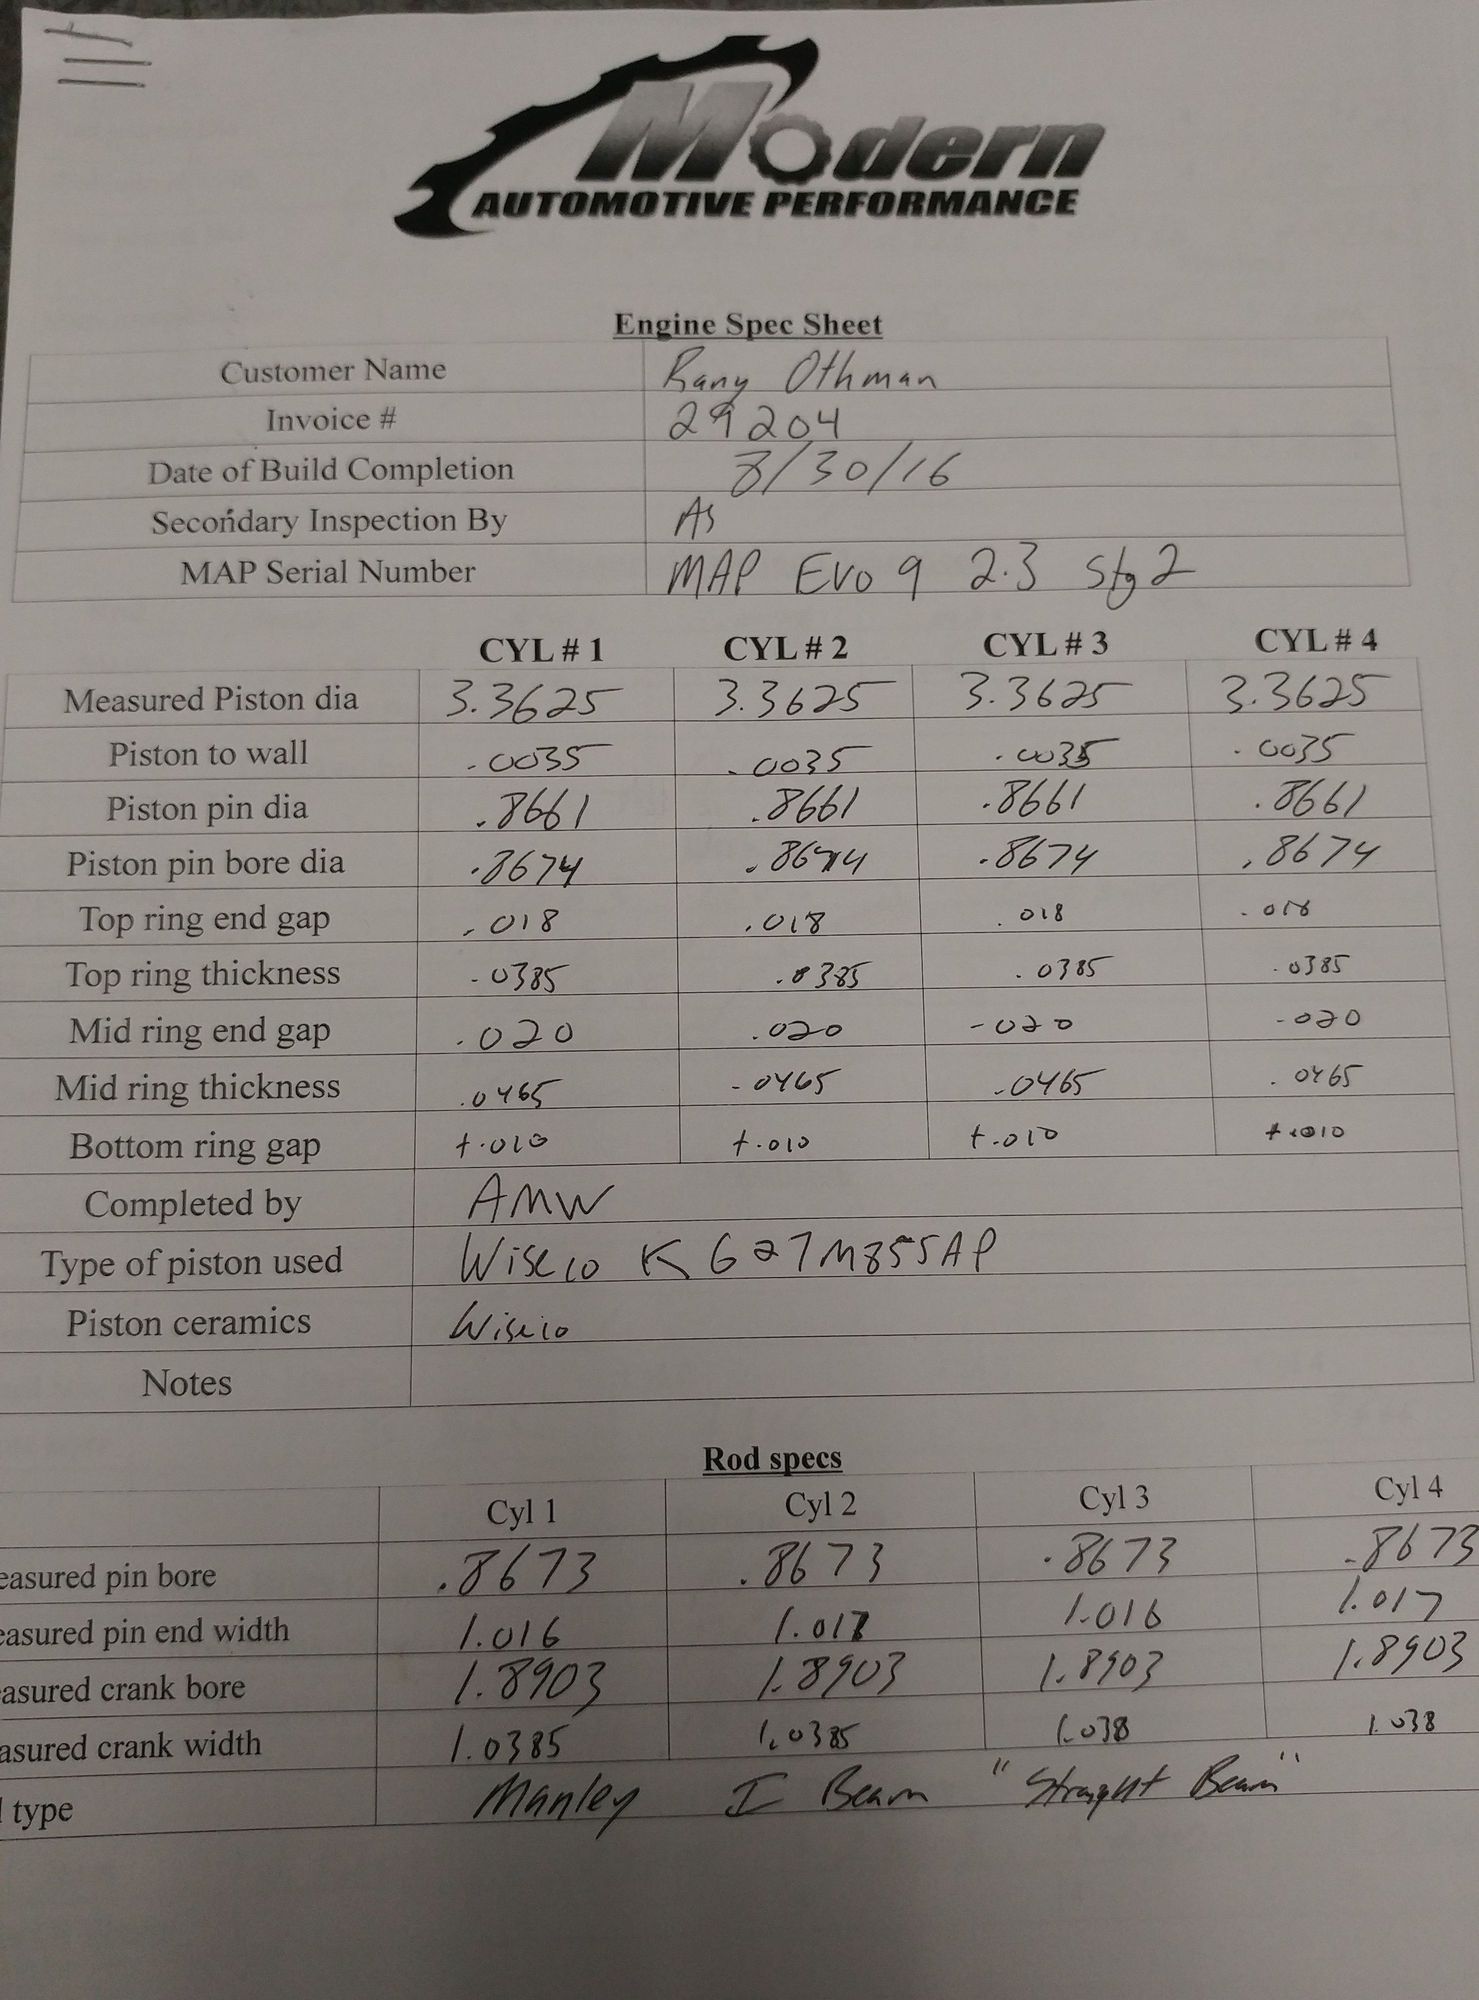 Modern
AUTOMOTIVE PERFORMANCE
Engine Spec Sheet
Customer Name Rany Othman
Invoice # 29204
Date of Build Completion 8/30/16
Secondary Inspection By AS
MAP Serial Number MAP Evo 9 2.3 Stg 2
CYL # 1 CYL # 2 CYL # 3 CYL # 4
Measured Piston dia 3.3625 3.3625 3.3625 3.3625
Piston to wall .0035 .0035 .0035 .0035
Piston pin dia .8661 .8661 .8661 .8661
Piston pin bore dia .8674 .8674 .8674 .8674
Top ring end gap .018 .018 .018 .018
Top ring thickness .0385 .0385 .0385 .0385
Mid ring end gap .020 .020 .020 .020
Mid ring thickness .0465 .0465 .0465 .0465
Bottom ring gap +.010 +.010 +.010 +.010
Completed by AMW
Type of piston used Wiseco K627M855AP
Piston ceramics Wiseco
Notes
Rod specs
Cyl 1 Cyl 2 Cyl 3 Cyl 4
easured pin bore .8673 .8673 .8673 .8673
easured pin end width 1.016 1.017 1.016 1.017
asured crank bore 1.8903 1.8903 1.8903 1.8903
asured crank width 1.0385 1.0385 1.038 1.038
type Manley I Beam "Straight Beam"